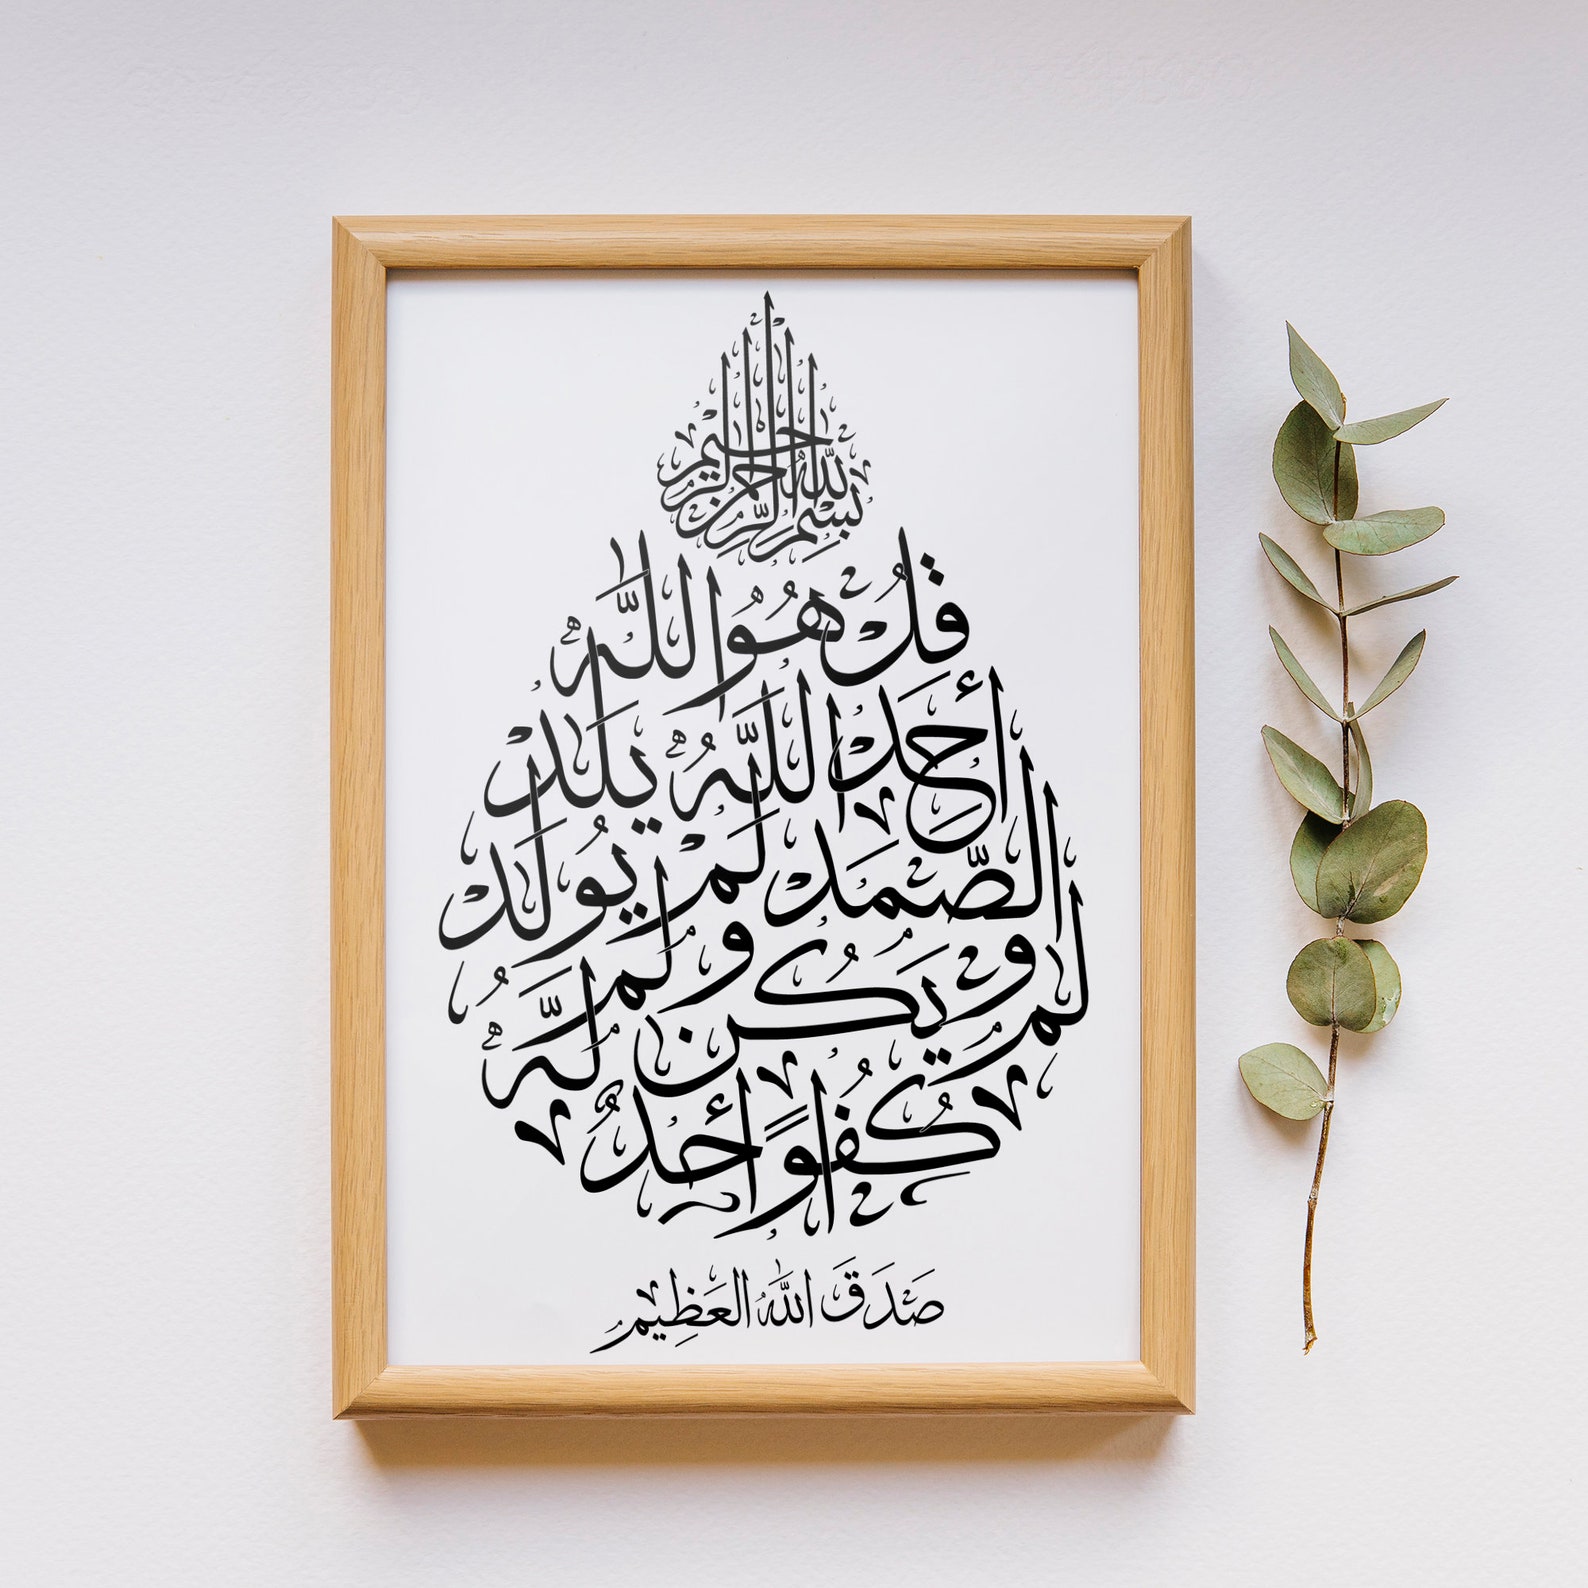 بِسْمِ اللَّهِ الرَّحْمَنِ الرَّحِيمِ
قُلْ هُوَ اللَّهُ
أَحَدٌ اللَّهُ
الصَّمَدُ لَمْ يَلِدْ
وَلَمْ يُولَدْ
وَلَمْ يَكُنْ لَهُ
كُفُوًا أَحَدٌ
صَدَقَ اللَّهُ العَظِيمُ